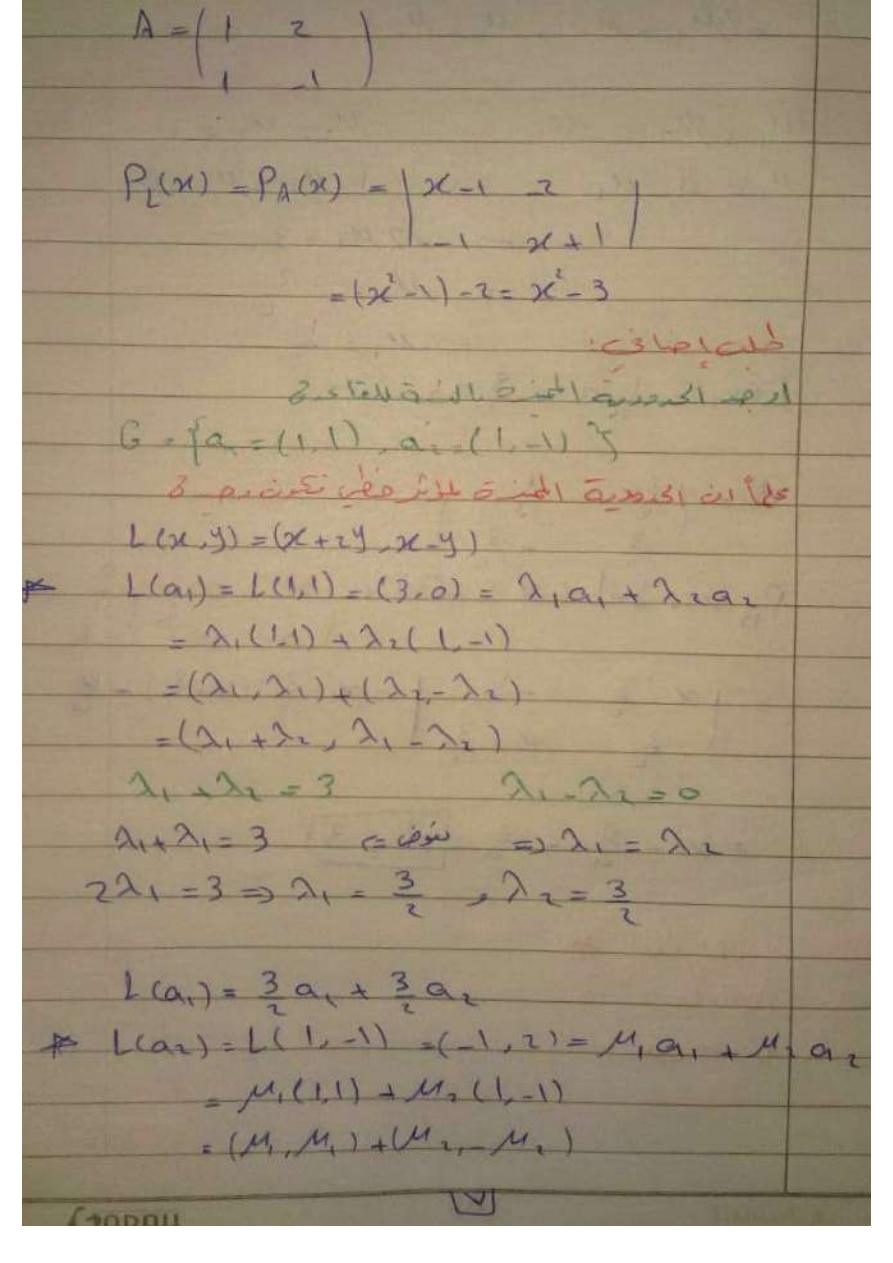 A = ( 1 2
1 -1 )
P_L(x) = P_A(x) = | x-1 -2
-1 x+1 |
= (x²-1) -2 = x² - 3
طلب إضافي:
اوجد الحدودية المميزة بالنسبة للقاعدة
G = {a₁ = (1,1), a₂ = (1,-1)}
علماً ان الحدودية المميزة لمؤثر خطي تكون
L(x,y) = (x+2y, x-y)
* L(a₁) = L(1,1) = (3,0) = λ₁a₁ + λ₂a₂
= λ₁(1,1) + λ₂(1,-1)
= (λ₁, λ₁) + (λ₂, -λ₂)
= (λ₁ + λ₂, λ₁ - λ₂)
λ₁ + λ₂ = 3 λ₁ - λ₂ = 0
λ₁ + λ₁ = 3 نعوض ⇐ ⇒ λ₁ = λ₂
2λ₁ = 3 ⇒ λ₁ = 3/2 , λ₂ = 3/2
L(a₁) = 3/2 a₁ + 3/2 a₂
* L(a₂) = L(1,-1) = (-1,2) = μ₁a₁ + μ₂a₂
= μ₁(1,1) + μ₂(1,-1)
= (μ₁, μ₁) + (μ₂, -μ₂)